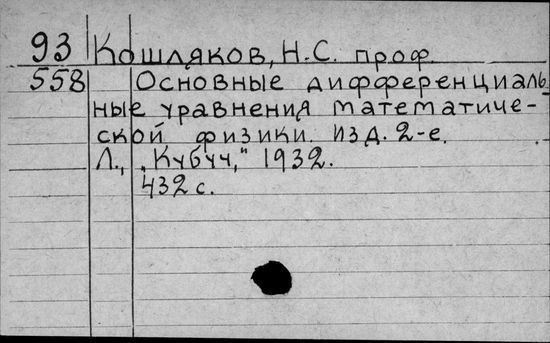 93 Кошляков, Н.С. проф.
558 Основные дифференциаль-
ные уравнения математиче-
ской физики. изд. 2-е.
Л., „Кубуч," 1932.
432 с.